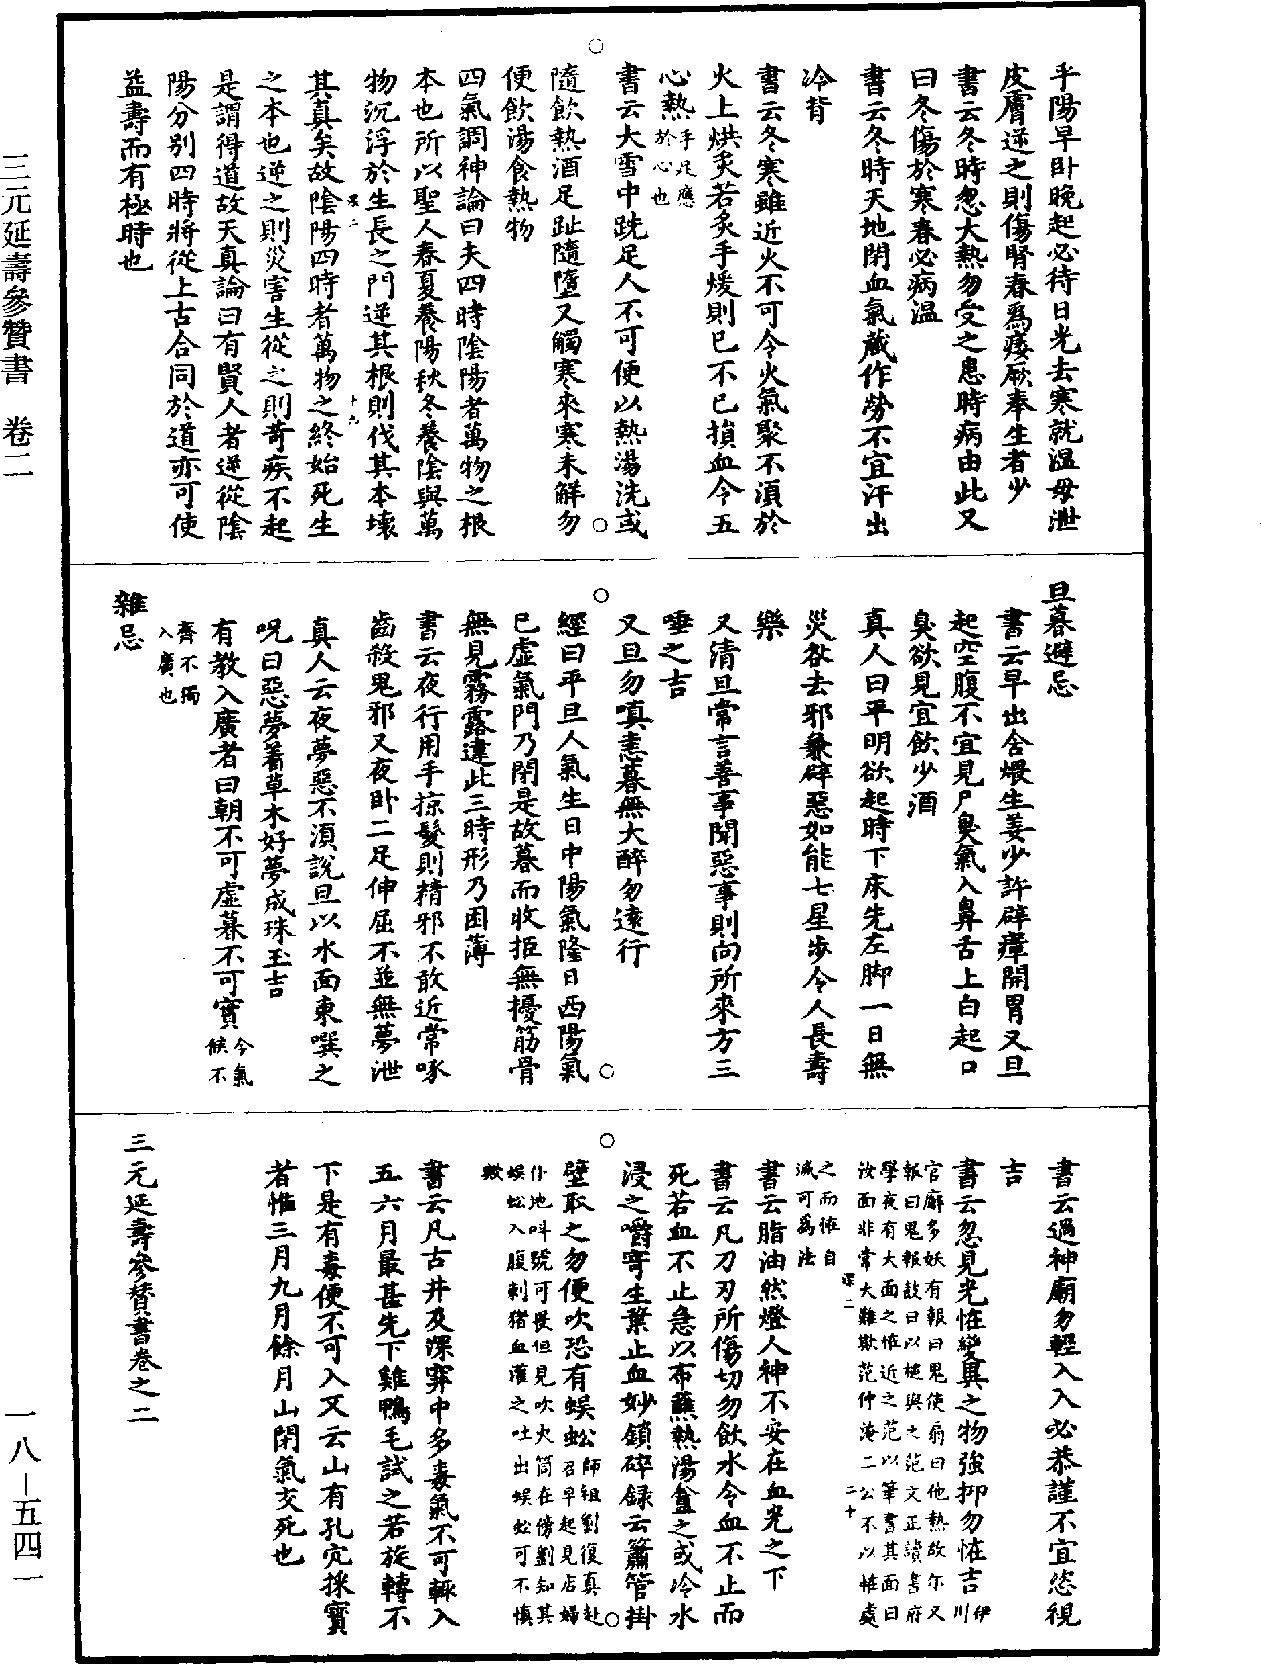 乎陽早卧晚起必待日光去寒就温毋泄
皮膚逆之則傷腎春為痿厥奉生者少
書云冬時忽大熱勿受之患時病由此又
曰冬傷於寒春必病温
書云冬時天地閉血氣藏作勞不宜汗出
冷背
書云冬寒雖近火不可令火氣聚不湏於
火上烘炙若炙手煖則已不已損血令五
心熱手足應於心也
書云大雪中跣足人不可便以熱湯洗或
隨飲熱酒足趾隨墮又觸寒來寒未解勿
便飲湯食熱物
四氣調神論曰夫四時陰陽者萬物之根
本也所以聖人春夏養陽秋冬養陰與萬
物沉浮於生長之門逆其根則伐其本壞
其真矣故陰陽四時者萬物之終始死生
之本也逆之則災害生從之則苛疾不起
是謂得道故天真論曰有賢人者逆從陰
陽分別四時將從上古合同於道亦可使
益壽而有極時也
旦暮避忌
書云早出含煨生姜少許辟瘴開胃又旦
起空腹不宜見尸臭氣入鼻舌上白起口
臭欲見宜飲少酒
真人曰平明欲起時下床先左脚一日無
災咎去邪兼辟惡如能七星步令人長壽
樂
又清旦常言善事聞惡事則向所來方三
唾之吉
又旦勿嗔恚暮無大醉勿遠行
經曰平旦人氣生日中陽氣隆日西陽氣
已虛氣門乃閉是故暮而收拒無擾筋骨
無見霧露違此三時形乃困薄
書云夜行用手掠髮則精邪不敢近常啄
齒殺鬼邪又夜卧二足伸屈不並無夢泄
真人云夜夢惡不湏說旦以水面東噀之
呪曰惡夢著草木好夢成珠玉吉
有教入廣者曰朝不可虛暮不可實今氣候不
齊不獨入廣也
雜忌
書云過神廟勿輕入入必恭謹不宜恣視
吉
書云忽見光怪變異之物強抑勿怪吉伊川
官廨多妖有報曰鬼使扇曰他熱故尓又
報曰鬼報鼓曰以槌與之范文正讀書府
學夜有大面之怪近之范以筆書其面曰
汝面非常大難欺范仲淹二公不以怪處
之而怪自
滅可為法
書云脂油然燈人神不安在血光之下
書云凡刀刃所傷切勿飲水令血不止而
死若血不止急以布蘸熱湯盦之或冷水
浸之嚼寄生葉止血妙鎖碎録云簫管掛
壁取之勿便吹恐有蜈蚣師祖劉復真赴召早起見店婦
仆地呌號可畏但見吹火筒在傍劉知其
蜈蚣入腹刺猪血灌之吐出蜈蚣可不慎
歟
書云凡古井及深穽中多毒氣不可輒入
五六月最甚先下雞鴨毛試之若旋轉不
下是有毒便不可入又云山有孔穴採寳
者惟三月九月餘月山閉氣交死也
三元延壽參賛書卷之二
三元延壽參贊書　卷二
一八—五四一